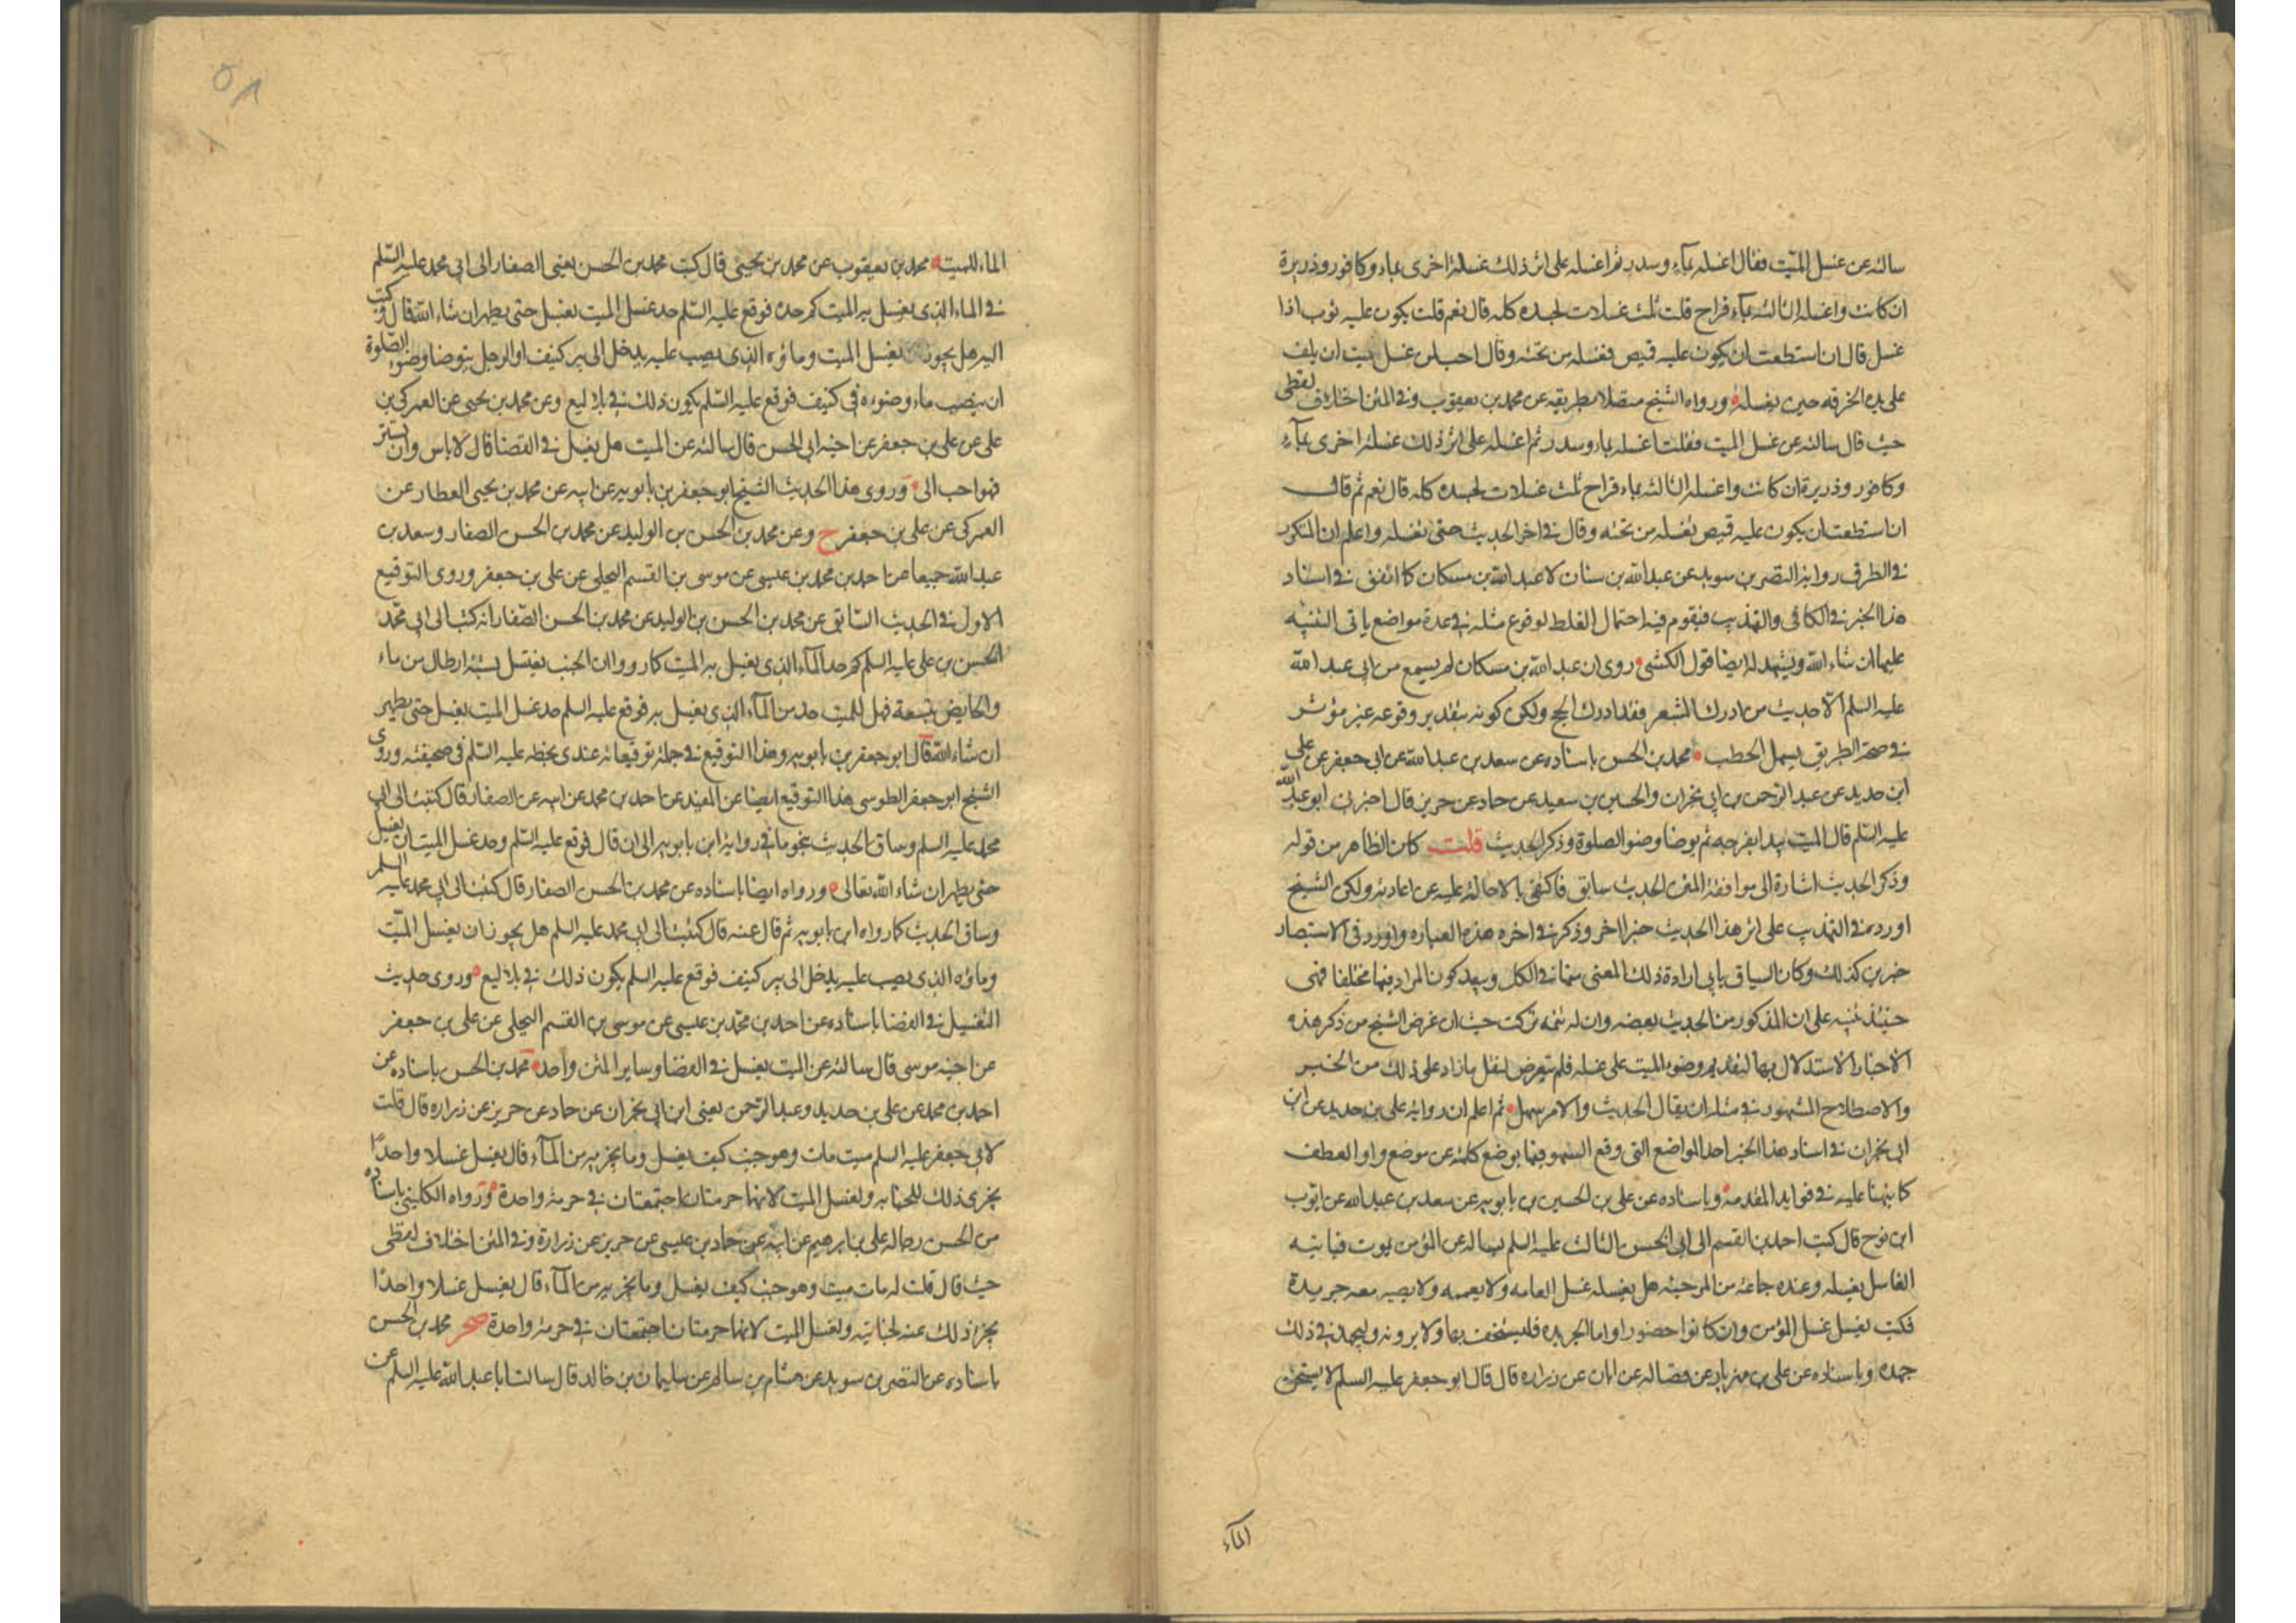 سالته عن غسل الميت فقال اغسله بمآء وسدر ثم اغسله على اثر ذلك غسلة اخرى بماء وكافور وذريرة
ان كانت واغسله الثالثة بمآء قراح قلت ثلث غسلات لجسده كله قال نعم قلت يكون عليه ثوب اذا
غسل قال ان استطعت ان يكون عليه قميص فغسله من تحته وقال احب لمن غسل الميت ان يلف
على يده الخرقه حين يغسله ورواه الشيخ متصلا بطريقه عن محمد بن يعقوب وفي المتن اختلاف لفظى
حيث قال سالته عن غسل الميت فقلت اغسله بماء وسدر ثم اغسله على اثر ذلك غسلة اخرى بمآء
وكافور وذريرة ان كانت واغسله الثالثة بماء قراح ثلث غسلات لجسده كله قال نعم ثم قال
ان استطعت ان يكون عليه قميص تغسله من تحته وقال في اخر الحديث حتى تغسله واعلم ان المتكرر
في الطرق رواية النضر بن سويد عن عبدالله بن سنان لا عبدالله بن مسكان كما اتفق في اسناد
هذا الخبر في الكافي والتهذيب فيقوم فيه احتمال الغلط لوقوع مثله في عدة مواضع ياتى التنبيه
عليها ان شاء الله ويشهد له ايضا قول الكشى روى ان عبدالله بن مسكان لم يسمع من ابى عبدالله
عليه السلم الا حديث من ادرك المشعر فقد ادرك الحج ولكن كونه بتقدير وقوعه غير مؤثر
في صحة الطريق يسهل الخطب محمد بن الحسن باسناده عن سعد بن عبدالله عن ابى جعفر عن على
ابن حديد عن عبدالرحمن بن ابى نجران والحسين بن سعيد عن حماد عن حريز قال اخبرني ابو عبدالله
عليه السلم قال الميت يبدا بفرجه ثم يوضا وضوء الصلوة وذكر الحديث قلت كان الظاهر من قوله
وذكر الحديث اشارة الى موافقة المتن لحديث سابق فاكتفى بالاحالة عليه عن اعادته ولكن الشيخ
اورده في التهذيب على اثر هذا الحديث خبرا اخر وذكر في اخره هذه العباره واورد في الاستبصار
خبرين كذلك وكان السياق يابى ارادة ذلك المعنى سيما في الكل وبعد كون المراد فيها مختلفا فهى
حينئذ تنبيه على ان المذكور من الحديث بعضه وان له تتمه تركت حيث ان غرض الشيخ من ذكر هذه
الاخبار الاستدلال بها لتقديم وضوء الميت على غسله فلم يتعرض لنقل ما زاد على ذلك من الخبر
والاصطلاح المشهور في مثله ان يقال الحديث والامر سهل ثم اعلم ان رواية على بن حديد عن ابن
ابى نجران في اسناد هذا الخبر احد المواضع التى وقع السهو فيها بوضع كلمة عن موضع واو العطف
كما نبهنا عليه في فوايد المقدمة وباسناده عن على بن الحسين بن بابويه عن سعد بن عبدالله عن ايوب
ابن نوح قال كتب احمد بن القسم الى ابى الحسن الثالث عليه السلم يساله عن المؤمن يموت فياتيه
الغاسل يغسله وعنده جماعة من المرجئة هل يغسله غسل العامه ولا يعممه ولا يصير معه جريدة
فكتب يغسل غسل المؤمن وان كانوا حضورا واما الجريده فليستخف بها ولا يرونه وليجهد في ذلك
جهده وباسناده عن على بن مهزيار عن فضاله عن ابان عن زراره قال قال ابو جعفر عليه السلم لا يسخن
المآء
الماء للميت محمد بن يعقوب عن محمد بن يحيى قال كتب محمد بن الحسن يعنى الصفار الى ابى محمد عليه السلم
في الماء الذى يغسل به الميت كم حده فوقع عليه السلم حد غسل الميت يغسل حتى يطهر ان شاء الله قال وكتب
اليه هل يجوز يغسل الميت وماؤه الذى يصب عليه يدخل الى بير كنيف او الرجل يتوضا وضوء الصلوة
ان ينصب ماء وضوءه في كنيف فوقع عليه السلم يكون ذلك في بلاليع وعن محمد بن يحيى عن العمركى بن
على عن على بن جعفر عن اخيه ابى الحسن قال سالته عن الميت هل يغسل في الفضا قال لا باس وان ستر بستر
فهو احب الى وروى هذا الحديث الشيخ ابو جعفر بن بابويه عن ابيه عن محمد بن يحيى العطار عن
العمركى عن على بن جعفر ح وعن محمد بن الحسن بن الوليد عن محمد بن الحسن الصفار وسعد بن
عبدالله جميعا عن احمد بن محمد بن عيسى عن موسى بن القسم البجلى عن على بن جعفر وروى التوقيع
الاول في الحديث السابق عن محمد بن الحسن بن الوليد عن محمد بن الحسن الصفار انه كتب الى ابى محمد
الحسن بن على عليه السلم كم حد المآء الذى يغسل به الميت كما رووا ان الجنب يغتسل بستة ارطال من ماء
والحايض بتسعة فهل للميت حد من المآء الذى يغسل به فوقع عليه السلم حد غسل الميت يغسل حتى يطهر
ان شاء الله قال ابو جعفر بن بابويه وهذا التوقيع في جملة توقيعاته عندى بخطه عليه السلم في صحيفته وروى
الشيخ ابو جعفر الطوسى هذا التوقيع ايضا عن المفيد عن احمد بن محمد عن ابيه عن الصفار قال كتبت الى ابى
محمد عليه السلم وساق الحديث بنحو ما في رواية ابن بابويه الى ان قال فوقع عليه السلم وحد غسل الميت ان يغسل
حتى يطهر ان شاء الله تعالى ورواه ايضا باسناده عن محمد بن الحسن الصفار قال كتبت الى ابى محمد عليه السلم
وساق الحديث كما رواه ابن بابويه ثم قال عنه قال كتبت الى ابى محمد عليه السلم هل يجوز ان يغسل الميت
وماؤه الذى يصب عليه يدخل الى بير كنيف فوقع عليه السلم يكون ذلك في بلاليع وروى حديث
التغسيل في الفضا باسناده عن احمد بن محمد بن عيسى عن موسى بن القسم البجلى عن على بن جعفر
عن اخيه موسى قال سالته عن الميت يغسل في الفضا وساير المتن واحد محمد بن الحسن باسناده عن
احمد بن محمد عن على بن حديد وعبدالرحمن يعنى ابن ابى نجران عن حماد عن حريز عن زراره قال قلت
لابى جعفر عليه السلم ميت مات وهو جنب كيف يغسل وما يجزيه من المآء قال يغسل غسلا واحدا
يجزى ذلك للجنابه ولغسل الميت لانهما حرمتان اجتمعتا في حرمة واحدة ورواه الكلينى باسناده
من الحسن رجاله على بن ابرهيم عن ابيه عن حماد بن عيسى عن حريز عن زرارة وفي المتن اختلاف لفظى
حيث قال قلت له مات ميت وهو جنب كيف يغسل وما يجزيه من المآء قال يغسل غسلا واحدا
يجزى ذلك عنه لجنابته ولغسل الميت لانهما حرمتان اجتمعتا في حرمة واحدة صحر محمد بن الحسن
باسناده عن النضر بن سويد عن هشام بن سالم عن سليمان بن خالد قال سالت ابا عبدالله عليه السلم عن